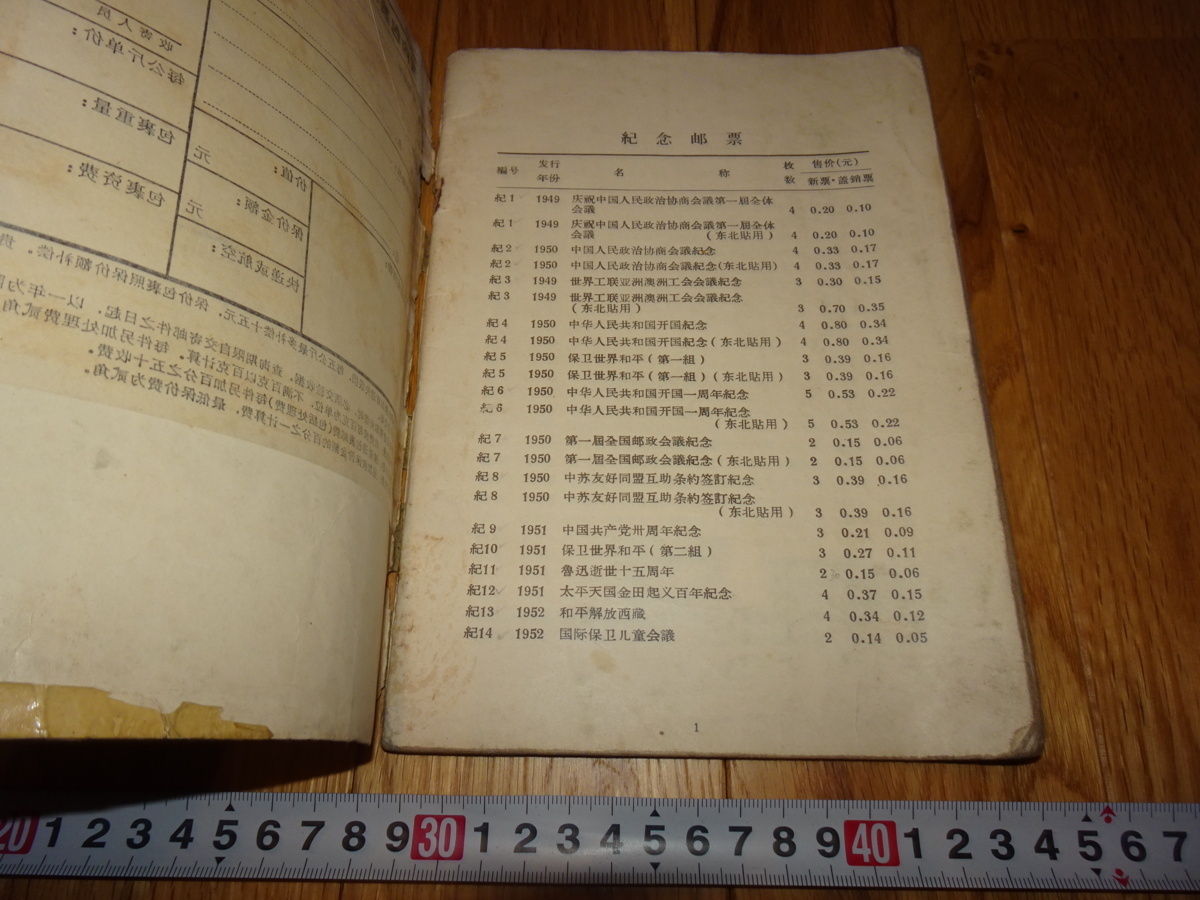 收寄人员
每公斤单价:
包裹重量:
包裹资费:
元
价值:
保价金额:
元
快递或航空:
紀念邮票
編号 发行年份 名称 枚数 售价(元) 新票·盖銷票
紀1 1949 庆祝中国人民政治协商会議第一届全体
会議 4 0.20 0.10
紀1 1949 庆祝中国人民政治协商会議第一届全体
会議 (东北貼用) 4 0.20 0.10
紀2 1950 中国人民政治协商会議紀念 4 0.33 0.17
紀2 1950 中国人民政治协商会議紀念(东北貼用) 4 0.33 0.17
紀3 1949 世界工联亚洲澳洲工会会議紀念 3 0.30 0.15
紀3 1949 世界工联亚洲澳洲工会会議紀念
(东北貼用) 3 0.70 0.35
紀4 1950 中华人民共和国开国紀念 4 0.80 0.34
紀4 1950 中华人民共和国开国紀念(东北貼用) 4 0.80 0.34
紀5 1950 保卫世界和平(第一組) 3 0.39 0.16
紀5 1950 保卫世界和平(第一組)(东北貼用) 3 0.39 0.16
紀6 1950 中华人民共和国开国一周年紀念 5 0.53 0.22
紀6 1950 中华人民共和国开国一周年紀念
(东北貼用) 5 0.53 0.22
紀7 1950 第一届全国邮政会議紀念 2 0.15 0.06
紀7 1950 第一届全国邮政会議紀念(东北貼用) 2 0.15 0.06
紀8 1950 中苏友好同盟互助条約签訂紀念 3 0.39 0.16
紀8 1950 中苏友好同盟互助条約签訂紀念
(东北貼用) 3 0.39 0.16
紀9 1951 中国共产党卅周年紀念 3 0.21 0.09
紀10 1951 保卫世界和平(第二組) 3 0.27 0.11
紀11 1951 魯迅逝世十五周年 2 0.15 0.06
紀12 1951 太平天国金田起义百年紀念 4 0.37 0.15
紀13 1952 和平解放西藏 4 0.34 0.12
紀14 1952 国际保卫儿童会議 2 0.14 0.05
1
20 1 2 3 4 5 6 7 8 9 30 1 2 3 4 5 6 7 8 9 40 1 2 3 4 5 6 7